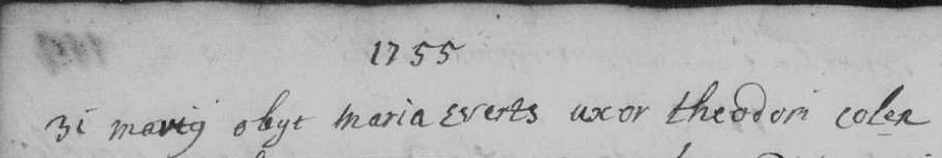 1755
31 martij obyt maria Everts uxor theodori colen